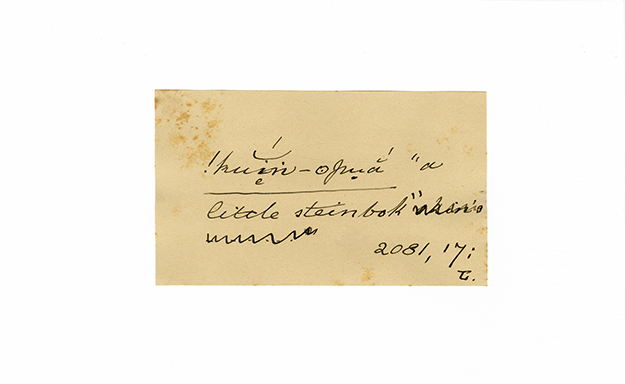 !kuĭń-opuá "a
little steinbok"
2081, 17;
L.